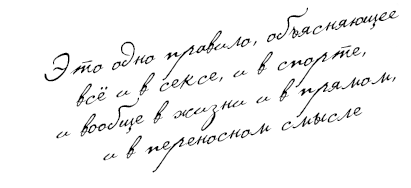 Это одно правило, объясняющее
всё и в сексе, и в спорте,
и вообще в жизни и в прямом,
и в переносном смысле